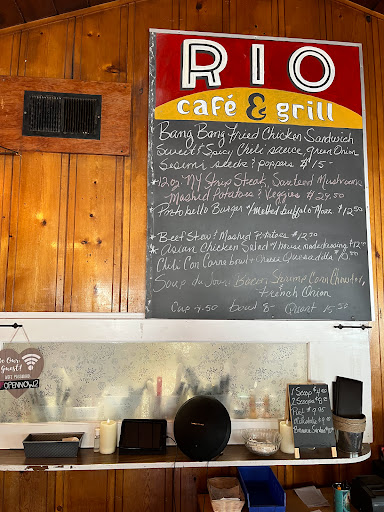 RIO
café & grill
Bang Bang Fried Chicken Sandwich
Sweet & Spicy Chili sauce, Green Onion
Sesimi seeds & poppers $15-
*12 oz NY Strip Steak, Sauteed Mushrooms
-Mashed Potatoes & Veggies $24.50
*Portobello Burger w/ Melted buffalo Mozz $12.50
*Beef Stew & Mashed Potatoes $12.50
*Asian Chicken Salad w/ House made dressing $12.
Chili Con Carne bowl + Cheese Quesadilla
Soup du Jour: Bacon Shrimp Corn Chowder,
French Onion
Cup 4.50 bowl 8- Quart 15.50
Be Our
Guest!
WIFI PASSWORD
OPENNOW2
1 Scoop $4.00
2 Scoops
Pie $9.95